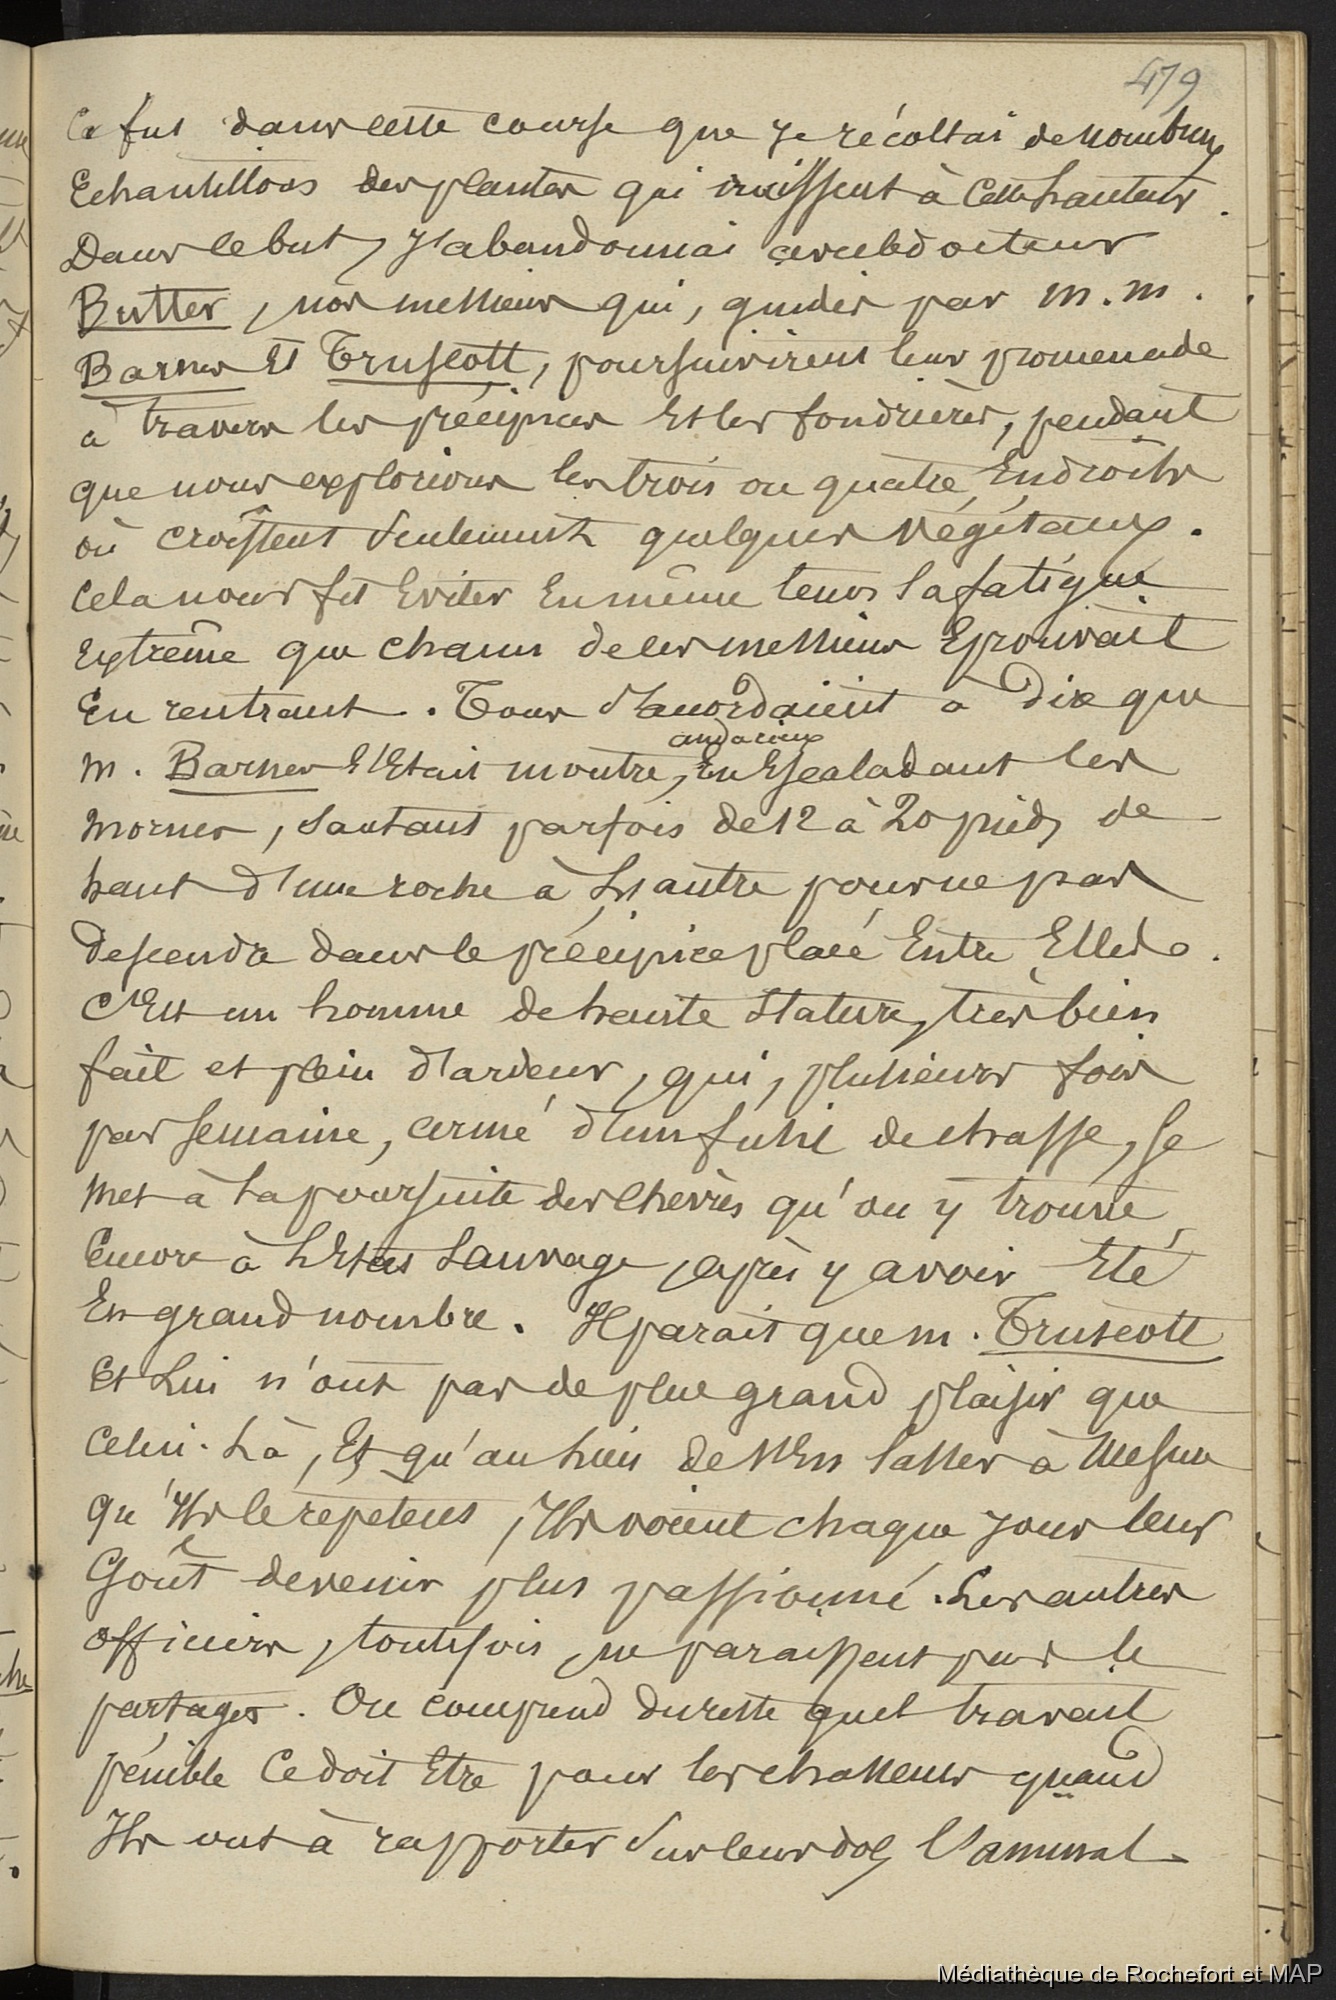 479
Ce fut dans cette course que je récoltai de nombreux
Echantillons des plantes qui croissent à cette hauteur.
Dans le but, J'abandonnai avec le docteur
Butter, nos messieurs qui, guidés par m. m.
Barnes Et Truscott, poursuivirent leur promenade
à travers les précipices Et les fondrières, pendant
que nous explorions les trois ou quatre Endroits
où croissent seulement quelques végétaux.
Cela nous fit Eviter En même tems la fatigue
Extrême que chacun de ces messieurs Eprouvait
En rentrant. Tous s'accordaient à dire que
audacieux
m. Barnes s'Etait montré, En Escaladant les
mornes, sautant parfois de 12 à 20 pieds de
haut d'une roche à l'autre pour ne pas
descendre dans le précipice placé Entre Elles.
C'Est un homme de haute stature, très bien
fait et plein d'ardeur, qui, plusieurs fois
par semaine, armé d'un fusil de chasse, se
met à la poursuite des chèvres qu'on y trouve
Encore à l'Etat sauvage, après y avoir Eté
En grand nombre. Il parait que m. Truscott
Et Lui n'ont pas de plus grand plaisir que
celui-là, Et qu'au lieu de s'En lasser à mesure
qu'Ils le répètent, Ils voient chaque jour leur
Goût devenir plus passionné. Les autres
officiers, toutefois, ne paraissent pas le
partager. On comprend du reste quel travail
pénible Ce doit Etre pour les chasseurs quand
Ils ont à rapporter sur leur dos, l'animal
Médiathèque de Rochefort et MAP